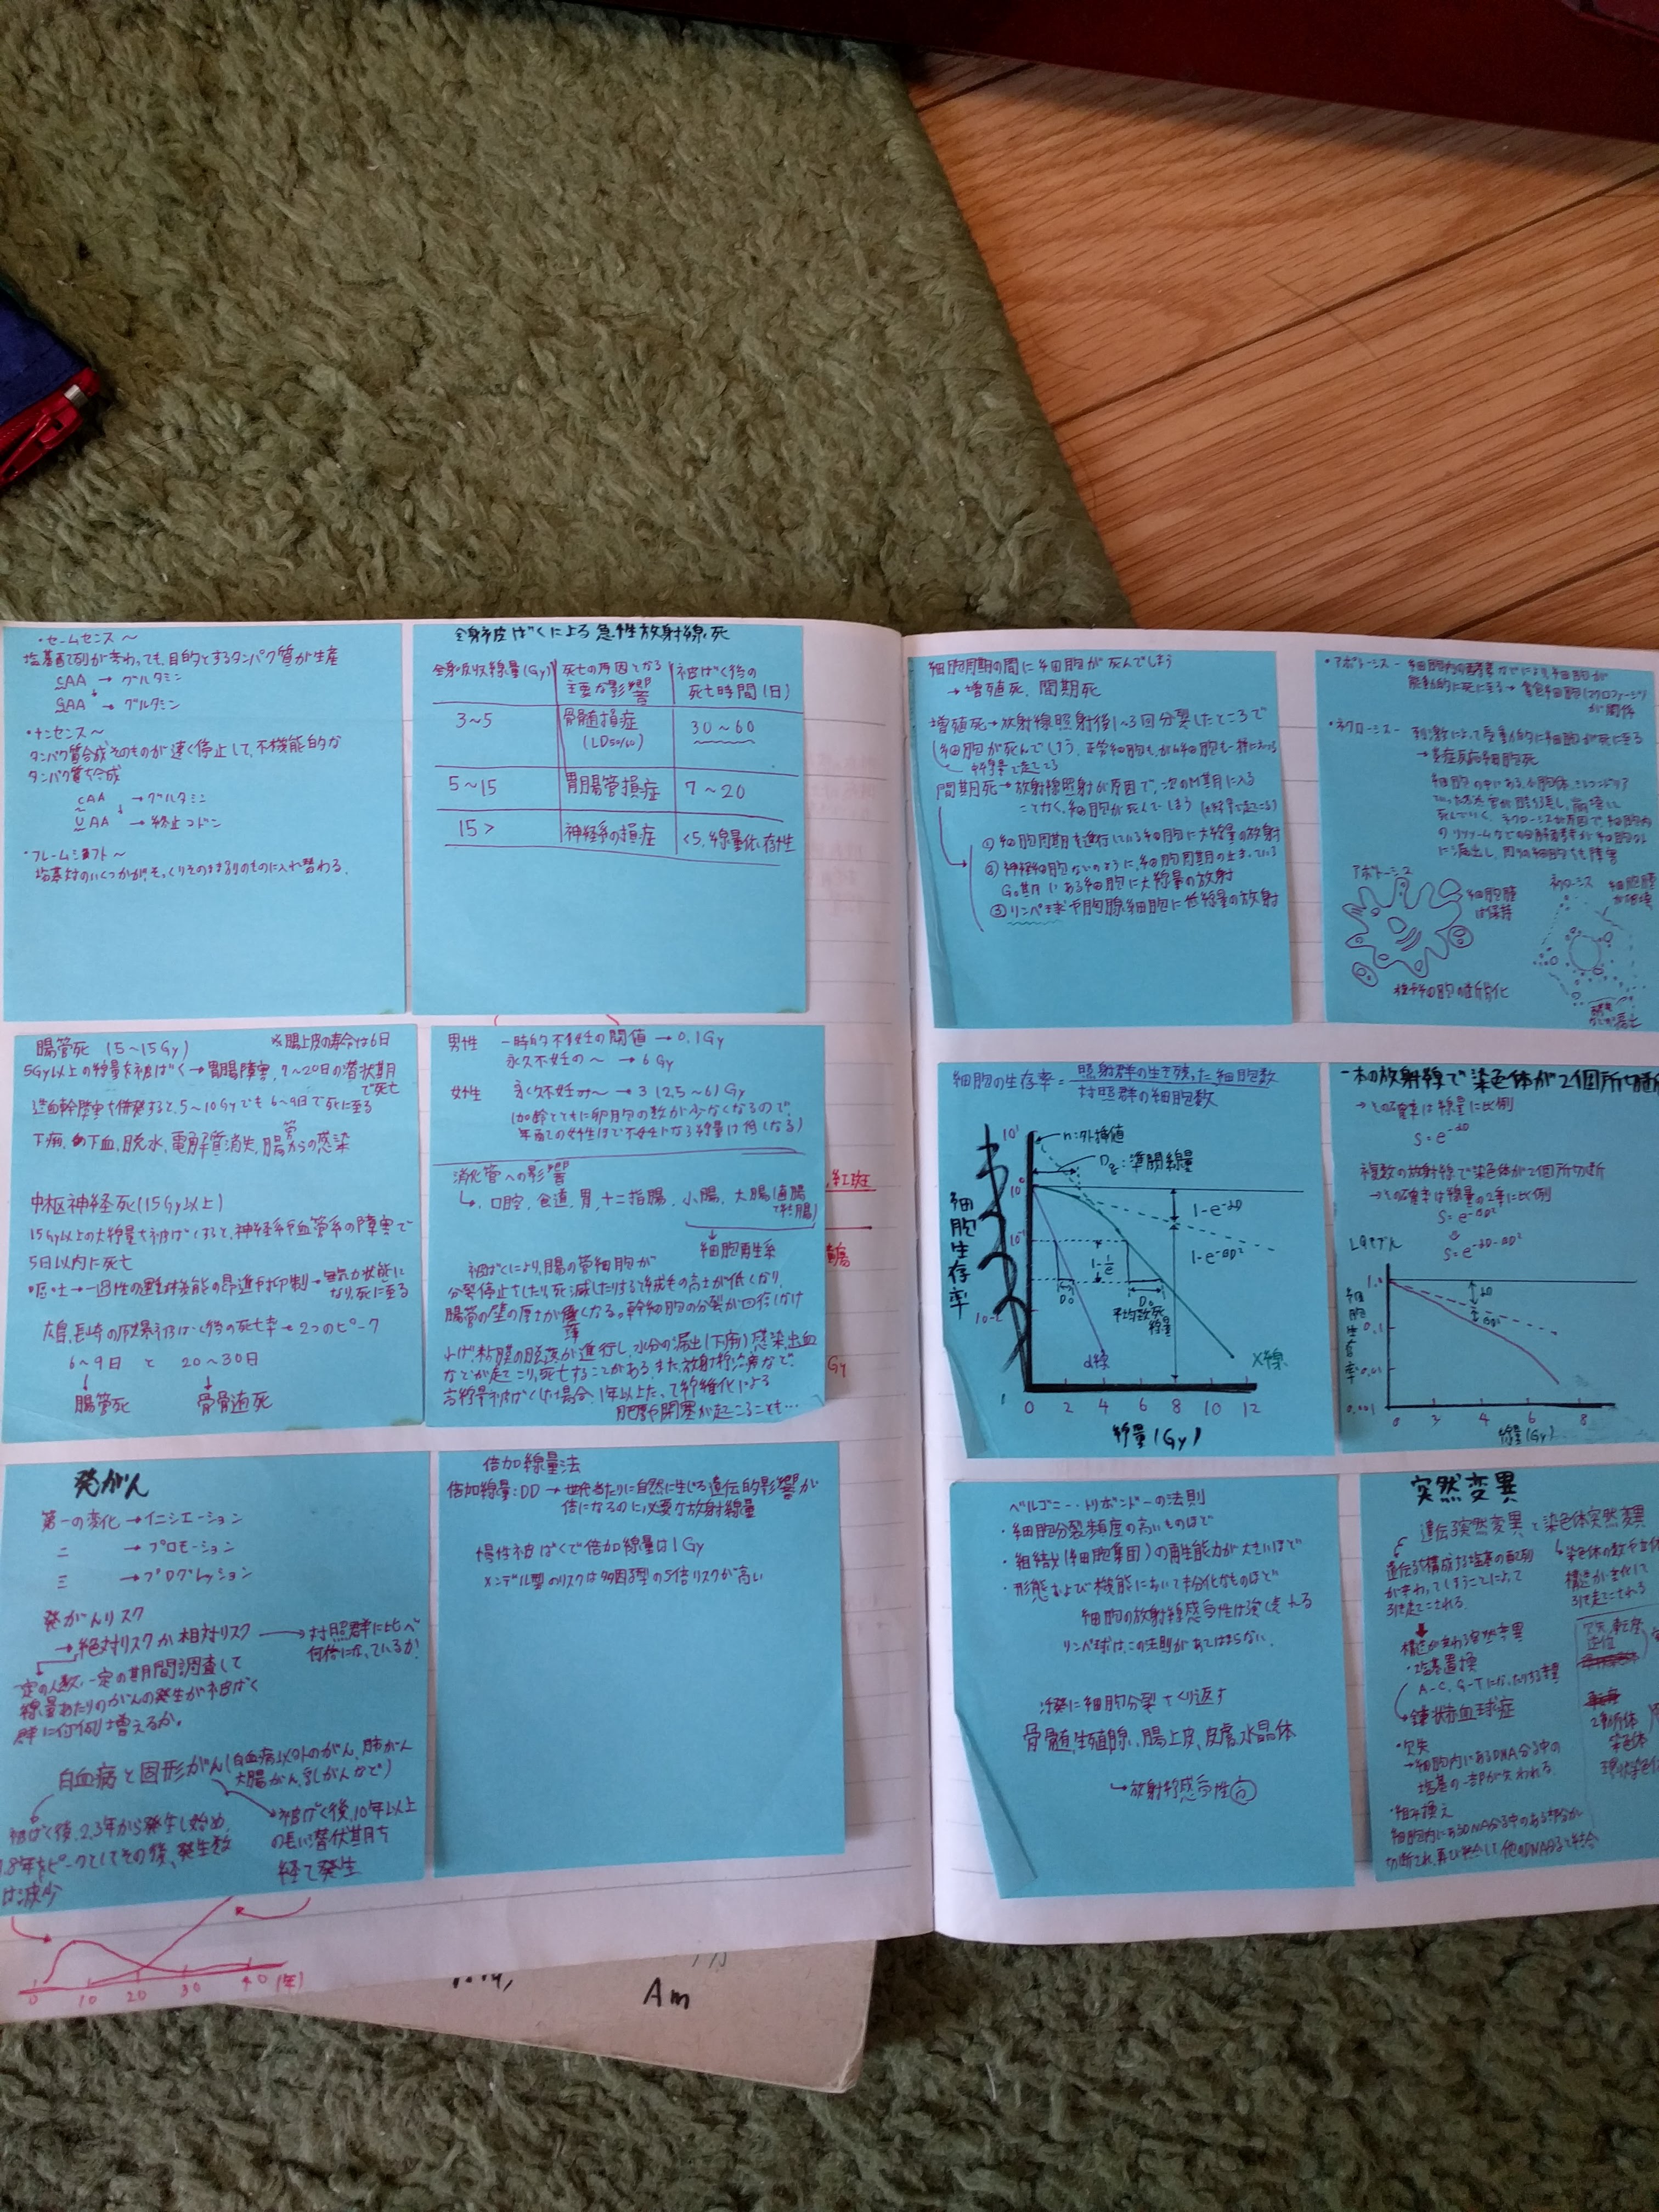 ・セームセンス～
塩基配列が変わっても、目的とするタンパク質が生産
CAA → グルタミン
GAA → グルタミン
・ナンセンス～
タンパク質合成そのものが速く停止して、不機能的な
タンパク質を合成
CAA → グルタミン
UAA → 終止コドン
・フレームシフト～
塩基対のいくつかが、そっくりそのまま別のものに入れ替わる。
全身被ばくによる急性放射線死
全身吸収線量(Gy)
死亡の原因となる
主要な影響
被ばく後の
死亡時間(日)
3～5
骨髄損症
(LD50/60)
30～60
5～15
胃腸管損症
7～20
15 >
神経系の損症
<5, 線量依存性
腸管死 (5～15Gy)
※腸上皮の寿命は6日
5Gy以上の線量を被ばく→胃腸障害, 7～20日の潜伏期
で死亡
造血幹障害を併発すると、5～10Gyでも6～9日で死に至る
下痢, 下血, 脱水, 電解質消失, 腸管からの感染
中枢神経死(15Gy以上)
15Gy以上の大線量を被ばくすると、神経系や血管系の障害で
5日以内に死亡
嘔吐→一過性の運動機能の昂進や抑制→無気力状態に
なり、死に至る
広島、長崎の原爆被ばく後の死亡率→2つのピーク
6～9日 と 20～30日
腸管死
骨髄死
男性 一時的不妊の閾値 → 0.1Gy
永久不妊の～ → 6Gy
女性 永久不妊の～ → 3(2.5～6)Gy
(加齢とともに卵胞の数が少なくなるので、
年配の女性ほど不妊になる線量は低くなる)
消化管への影響
口腔, 食道, 胃, 十二指腸, 小腸, 大腸(直腸
で終腸)
細胞再生系
被ばくにより、腸の管細胞が
分裂停止をしたり、死滅したりすると絨毛の高さが低くなり、
腸管の壁の厚さが薄くなる。幹細胞の分裂が回復しなけ
れば、粘膜の脱落が進行し、水分の漏出(下痢)感染、出血
などが起こり、死亡することがある。また放射線治療など、
高線量被ばくした場合、1年以上たって線維化による
肥厚や閉塞が起こることも…
紅斑
Gy
発がん
第一の変化 → イニシエーション
二 → プロモーション
三 → プログレッション
発がんリスク
→絶対リスクか相対リスク → 対照群に比べ
何倍になっているか?
定の人数, 一定の期間調査して
線量あたりのがんの発生が被ばく
群に何例増えるか。
白血病と固形がん(白血病以外のがん、肺がん
大腸がん、乳がんなど)
被ばく後、2,3年から発生し始め、
8年をピークとしてその後、発生数
は減少
被ばく後、10年以上
の長い潜伏期を
経て発生
0 10 20 30 40 (年)
倍加線量法
倍加線量:DD → 世代当たりに自然に生じる遺伝的影響が
倍になるのに必要な放射線量
慢性被ばくで倍加線量は1Gy
メンデル型のリスクは多因子型の5倍リスクが高い
Am
細胞周期の間に細胞が死んでしまう
→ 増殖死, 間期死
増殖死→放射線照射後1～3回分裂したところで
細胞が死んでしまう。正常細胞も、がん細胞も一様におこる
間期死→放射線照射が原因で、次のM期に入る
ことなく、細胞が死んでしまう
① 細胞周期を進行している細胞に大線量の放射
② 神経細胞ないのように、細胞周期の止まっている
G₀期にある細胞に大線量の放射
③ リンパ球や胸腺細胞に低線量の放射
・アポトーシス－細胞内の酵素などにより、細胞が
能動的に死に至る→貪食細胞(マクロファージ)
が関係
・ネクローシス－刺激によって受動的に細胞が死に至る
→炎症反応細胞死
細胞の中にある小胞体、ミトコンドリア
死んでいく。ネクローシスが原因で、細胞内
に流出し、周りの細胞をも障害
アポトーシス
細胞膜
は保持
ネクローシス
細胞膜
が破壊
細胞の生存率＝照射群の生き残った細胞数
対照群の細胞数
n:外挿値
Dq:準閾線量
10¹
10⁰
10⁻¹
10⁻²
細胞生存率
1-e⁻αD
1-e⁻βD²
1-1/e
D₀
D₀
平均致死
線量
α線
X線
0 2 4 6 8 10 12
線量(Gy)
一本の放射線で染色体が2個所切断
→その確率は線量に比例
S=e⁻αD
複数の放射線で染色体が2個所切断
→その確率は線量の2乗に比例
S=e⁻βD²
S=e⁻αD-βD²
LQモデル
細胞生存率
1.0
0.1
0.01
0.001
αD
βD²
0 2 4 6 8
線量(Gy)
ベルゴニー・トリボンドーの法則
・細胞分裂頻度の高いものほど
・組織(細胞集団)の再生能力が大きいほど
・形態および機能において未分化なものほど
細胞の放射線感受性は強く表れる
リンパ球は、この法則があてはまらない。
活発に細胞分裂をくり返す
骨髄, 生殖腺, 腸上皮, 皮膚, 水晶体
→放射線感受性高
突然変異
遺伝子突然変異と染色体突然変異
遺伝子を構成する塩基の配列
が変わってしまうことによって
引き起こされる。
染色体の数や立体
構造が変化して
引き起こされる
構造が変わる突然変異
・塩基置換
A-C, G-Tになったりする変異
→鎌状赤血球症
・欠失
→細胞内にあるDNA分子中の
塩基の一部が失われる。
・組み換え
細胞内にあるDNA分子中のある部分が
切断され、再び結合して他のDNA分子と結合
欠失, 転座
逆位
2動原体
染色体